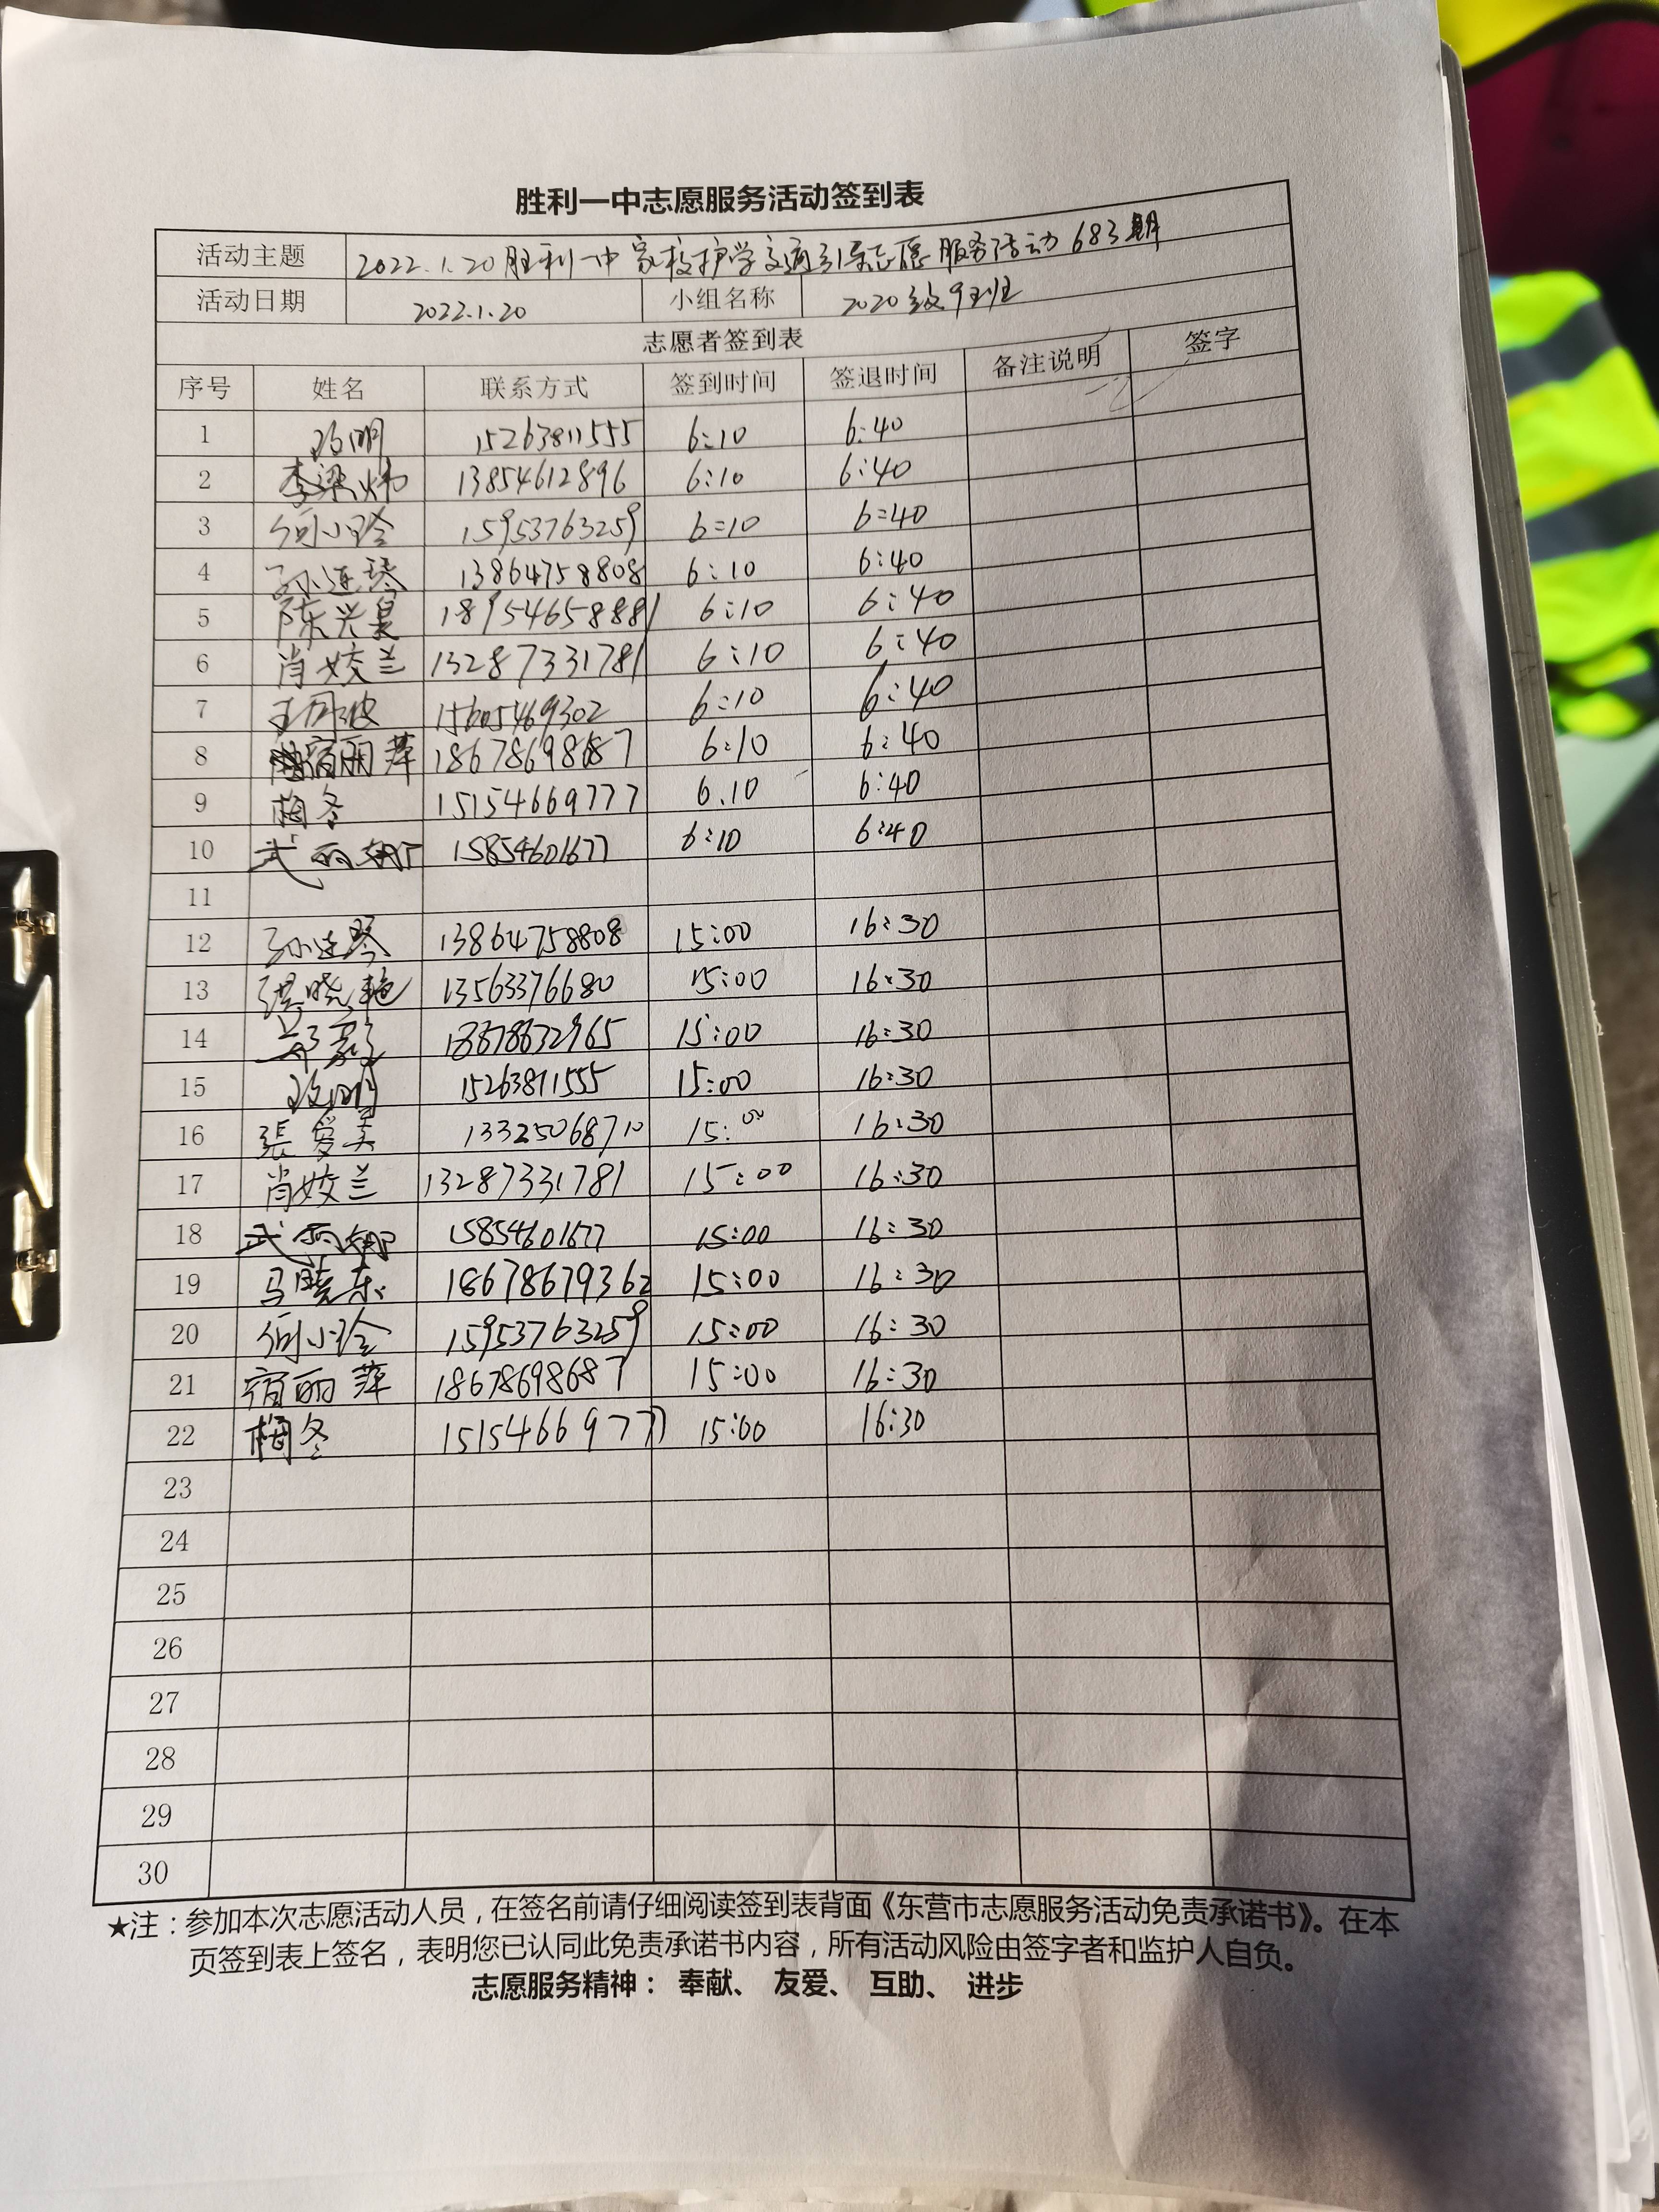 胜利一中志愿服务活动签到表
活动主题 2022.1.20胜利一中家校护学交通引导志愿服务活动683期
活动日期 2022.1.20 小组名称 2020级9班
志愿者签到表
序号 姓名 联系方式 签到时间 签退时间 备注说明 签字
1 15263811555 6:10 6:40
2 李梁炜 13854612896 6:10 6:40
3 何小玲 15953763259 6:10 6:40
4 孙连琴 13864758808 6:10 6:40
5 陈兴昊 18954658881 6:10 6:40
6 肖姣兰 13287331781 6:10 6:40
7 15605469302 6:10 6:40
8 宿丽萍 18678698687 6:10 6:40
9 梅冬 15154669777 6.10 6:40
10 武丽娜 15854601677 6:10 6:40
11
12 孙连琴 13864758808 15:00 16:30
13 晓艳 13563376680 15:00 16:30
14 15:00 16:30
15 15263811555 15:00 16:30
16 張爱美 13325068710 15:00 16:30
17 肖姣兰 13287331781 15:00 16:30
18 武丽娜 15854601677 15:00 16:30
19 马晓东 18678679362 15:00 16:30
20 何小玲 15953763259 15:00 16:30
21 宿丽萍 18678698687 15:00 16:30
22 梅冬 15154669777 15:00 16:30
23
24
25
26
27
28
29
30
★注：参加本次志愿活动人员，在签名前请仔细阅读签到表背面《东营市志愿服务活动免责承诺书》。在本
页签到表上签名，表明您已认同此免责承诺书内容，所有活动风险由签字者和监护人自负。
志愿服务精神： 奉献、 友爱、 互助、 进步